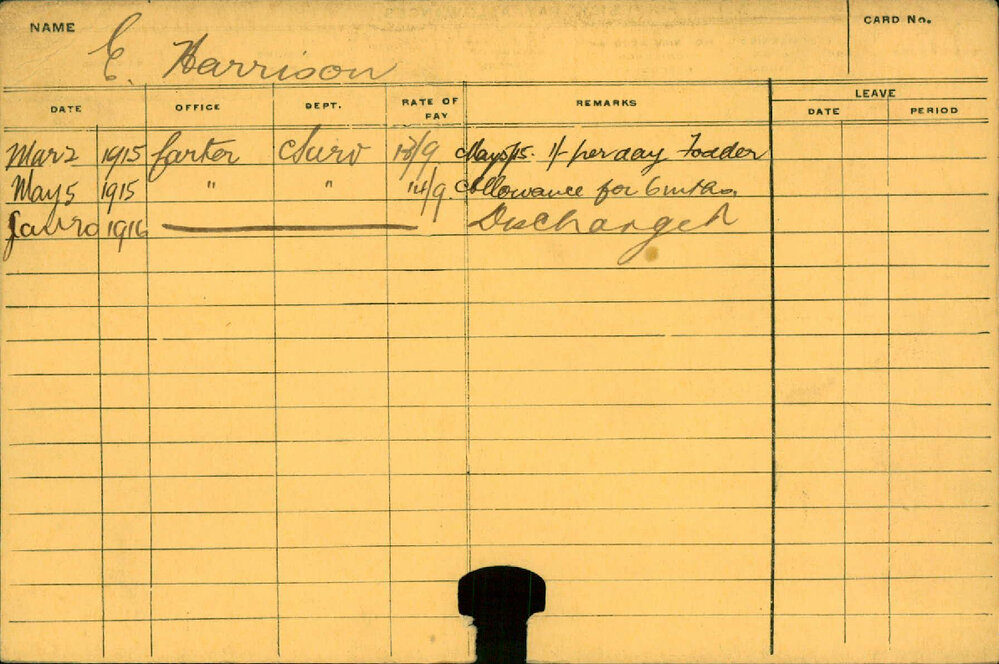 NAME
CARD No.
E. Harrison
LEAVE
DATE OFFICE DEPT. RATE OF PAY REMARKS DATE PERIOD
Mar 2 1915 Carter Surv 13/9 May5/15. 1/- per day Fodder
May 5 1915 " " 14/9. Allowance for 6 mths.
1916 Discharged